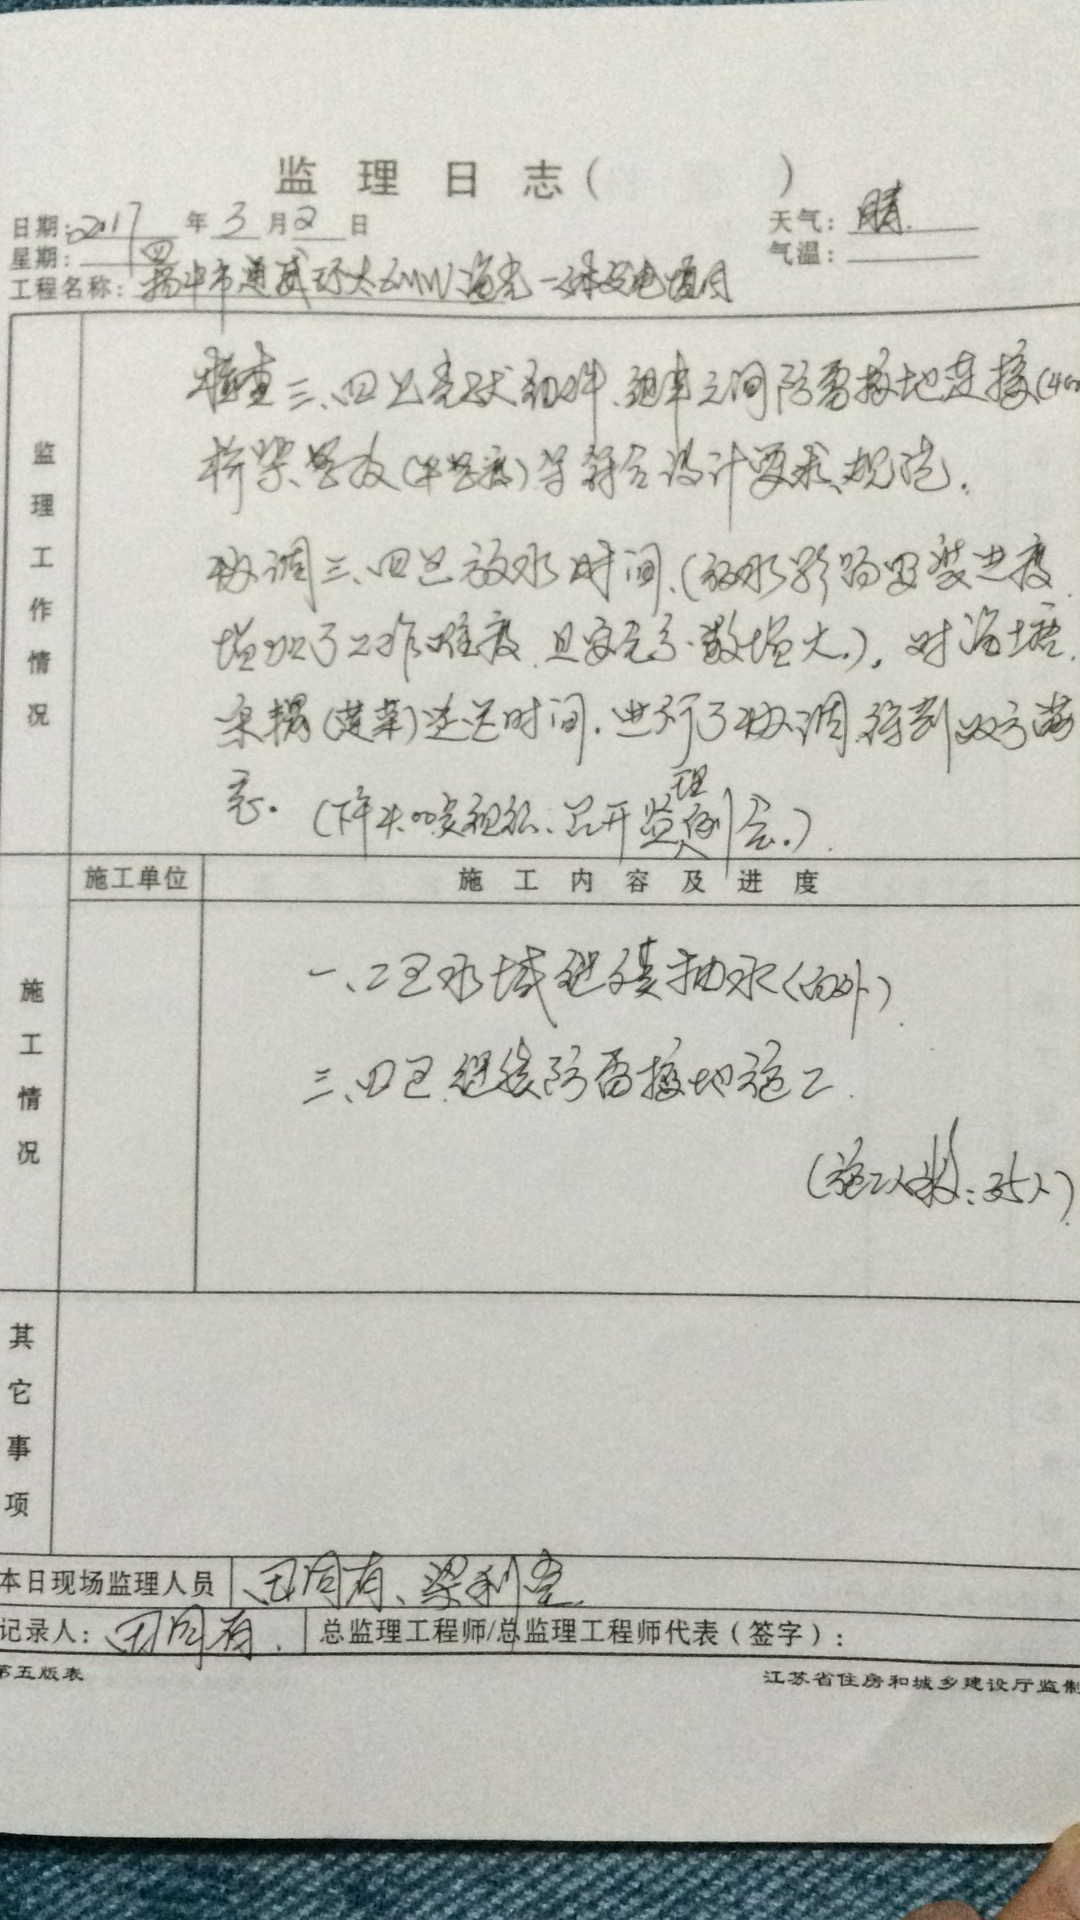 监理日志( )
日期: 2017 年 3 月 2 日 天气: 晴.
星期: 四 气温:
工程名称: 扬中市通威环太 MW渔光一体发电项目
监理工作情况
检查三、四 组件、组串之间防雷接地连接(
桥架 等符合设计要求、规范。
协调三、四 放水时间,(放水影响安装进度
增加了工作难度,且 增大。)。对渔塘
时间,进行了协调,得到双方满
意。(下午 召开监理例会。)
施工单位 施工内容及进度
施工情况
一、二区水域继续抽水(向外)
三、四区.继续防雷接地施工.
(施工人数:35人)
其它事项
本日现场监理人员 田 有、梁利
记录人: 田 有. 总监理工程师/总监理工程师代表(签字):
第五版表 江苏省住房和城乡建设厅监制